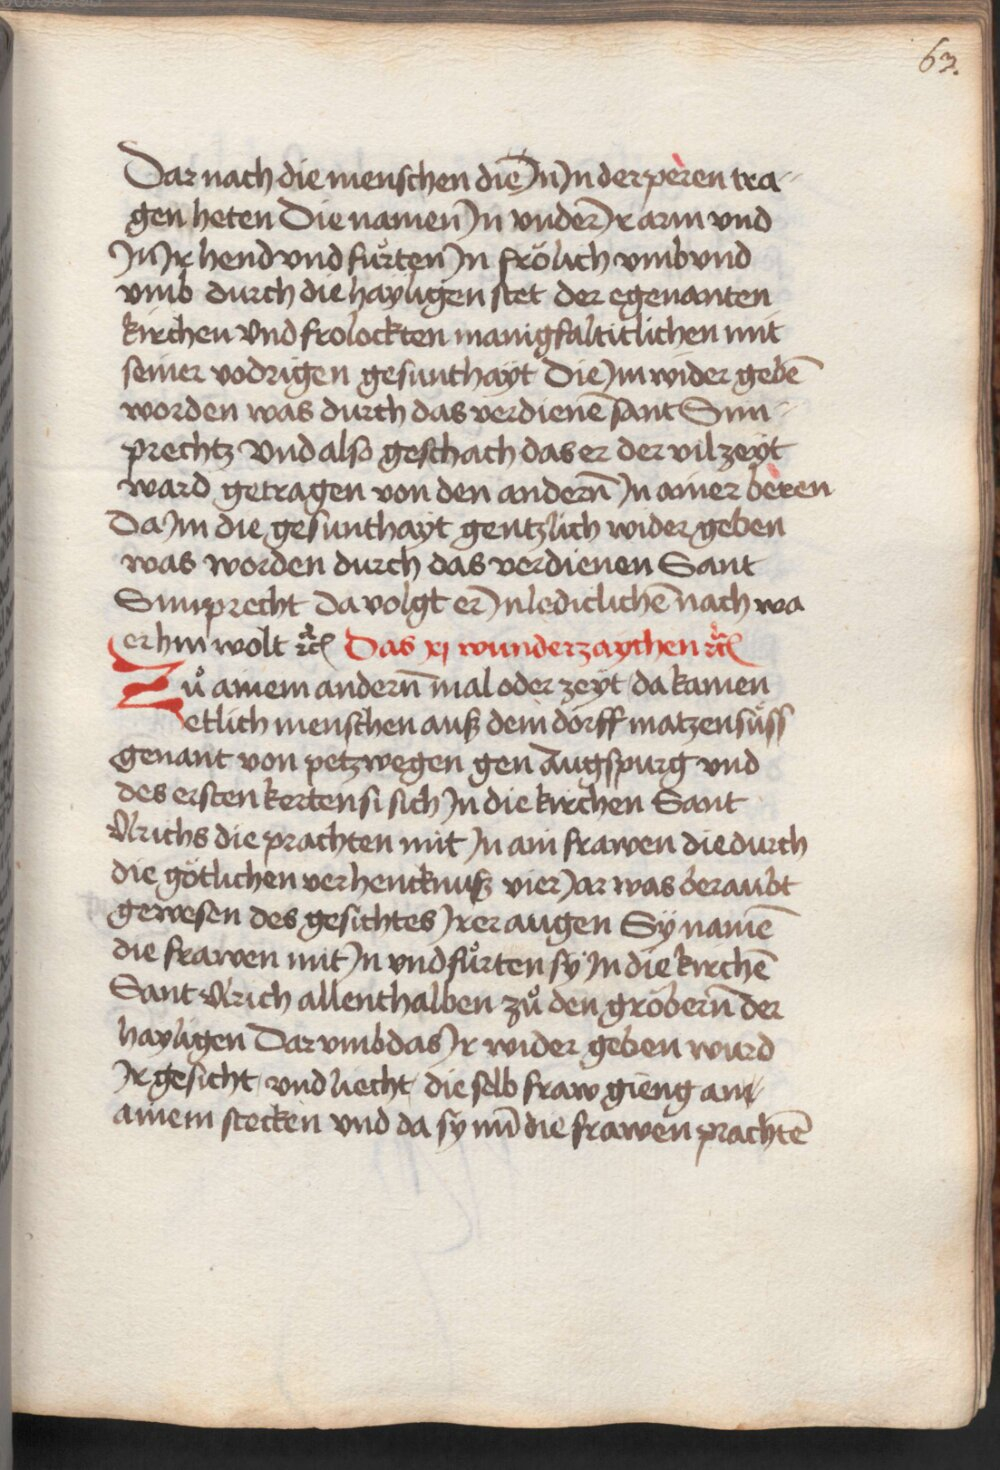 63.
Dar nach die menschen die Jn Jn der peren tra-
gen heten Die namen Jn vnder Jr arm vnd
Jn Jr hend vnd fůrten Jn frölich vmb vnd
vmb durch die hayligen stet der egenanten
kirchen vnd frolockten manigfaltitlichen mit
seiner vodrigen gesunthayt Die Jm wider gebē
worden was durch das verdienē sant Sim-
prechtz Vnd also geschach das er der vil zeyt
ward getragen von den andern̄ Jn ainer beren
Da Jm die gesunthayt gentzlich wider geben
was worden durch das verdienen Sant
Simprecht Da volgt er Jn lediclichē nach wa
er hin wolt rc̄ Das xj wunderzaychen rc̄
Zů ainem andern̄ mal oder zeyt da kamen
etlich menschen auß dem dorff matzensüss
genant von petzwegen gen Augspurg vnd
des ersten kerten si sich Jn die kirchen Sant
Vlrichs die prachten mit Jn ain frawen die durch
die götlichen verhencknuß vier Jar was beraubt
gewesen des gesichtes Jrer augen Sy namē
die frawen mit Jn vnd fůrten sy Jn die kirchē
Sant Vlrich allenthalben zů den gröbern̄ der
hayligen Dar vmb das Jr wider geben wurd
Jr gesicht vnd liecht die selb fraw gieng an
ainem stecken vnd da sy nun̄ die frawen prachtē